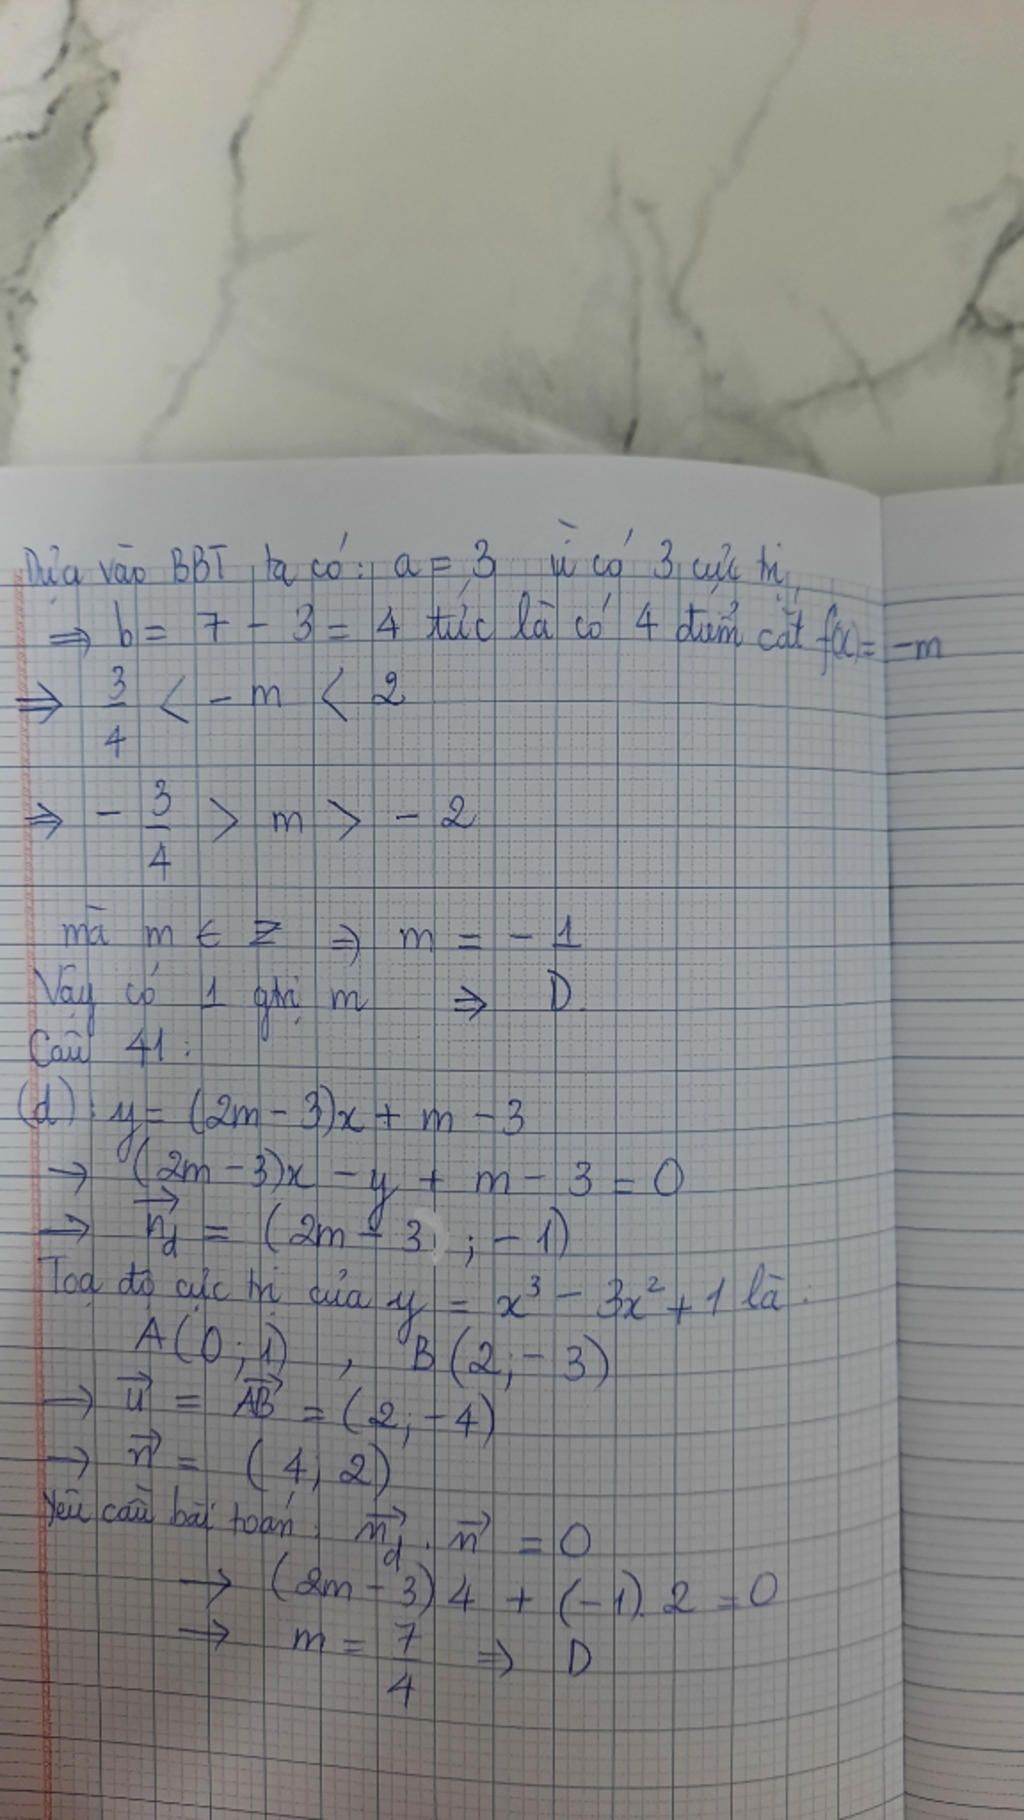 Dựa vào BBT ta có: a = 3 vì có 3 cực trị
⇒ b = 7 - 3 = 4 tức là có 4 điểm cắt f(x) = -m
⇒ 3/4 < -m < 2
⇒ -3/4 > m > -2
mà m ∈ Z ⇒ m = -1
Vậy có 1 gtrị m ⇒ D.
Câu 41:
(d): y = (2m - 3)x + m - 3
→ (2m - 3)x - y + m - 3 = 0
→ n⃗_d = (2m - 3 ; -1)
Toạ độ cực trị của y = x³ - 3x² + 1 là:
A(0; 1) , B(2; -3)
→ u⃗ = AB⃗ = (2; -4)
→ n⃗ = (4; 2)
Yêu cầu bài toán: n⃗_d . n⃗ = 0
→ (2m - 3) 4 + (-1). 2 = 0
→ m = 7/4 ⇒ D